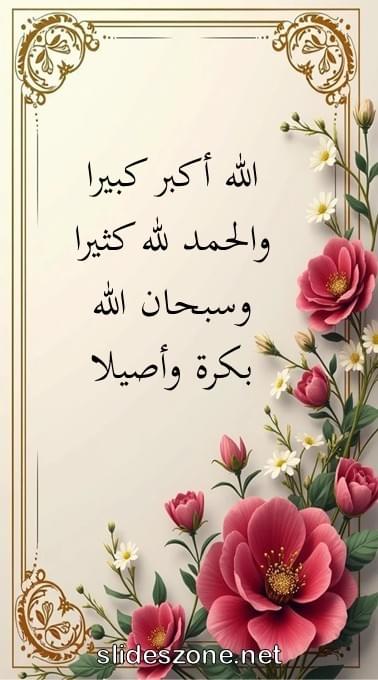 الله أكبر كبيرا
والحمد لله كثيرا
وسبحان الله
بكرة وأصيلا
slideszone.net